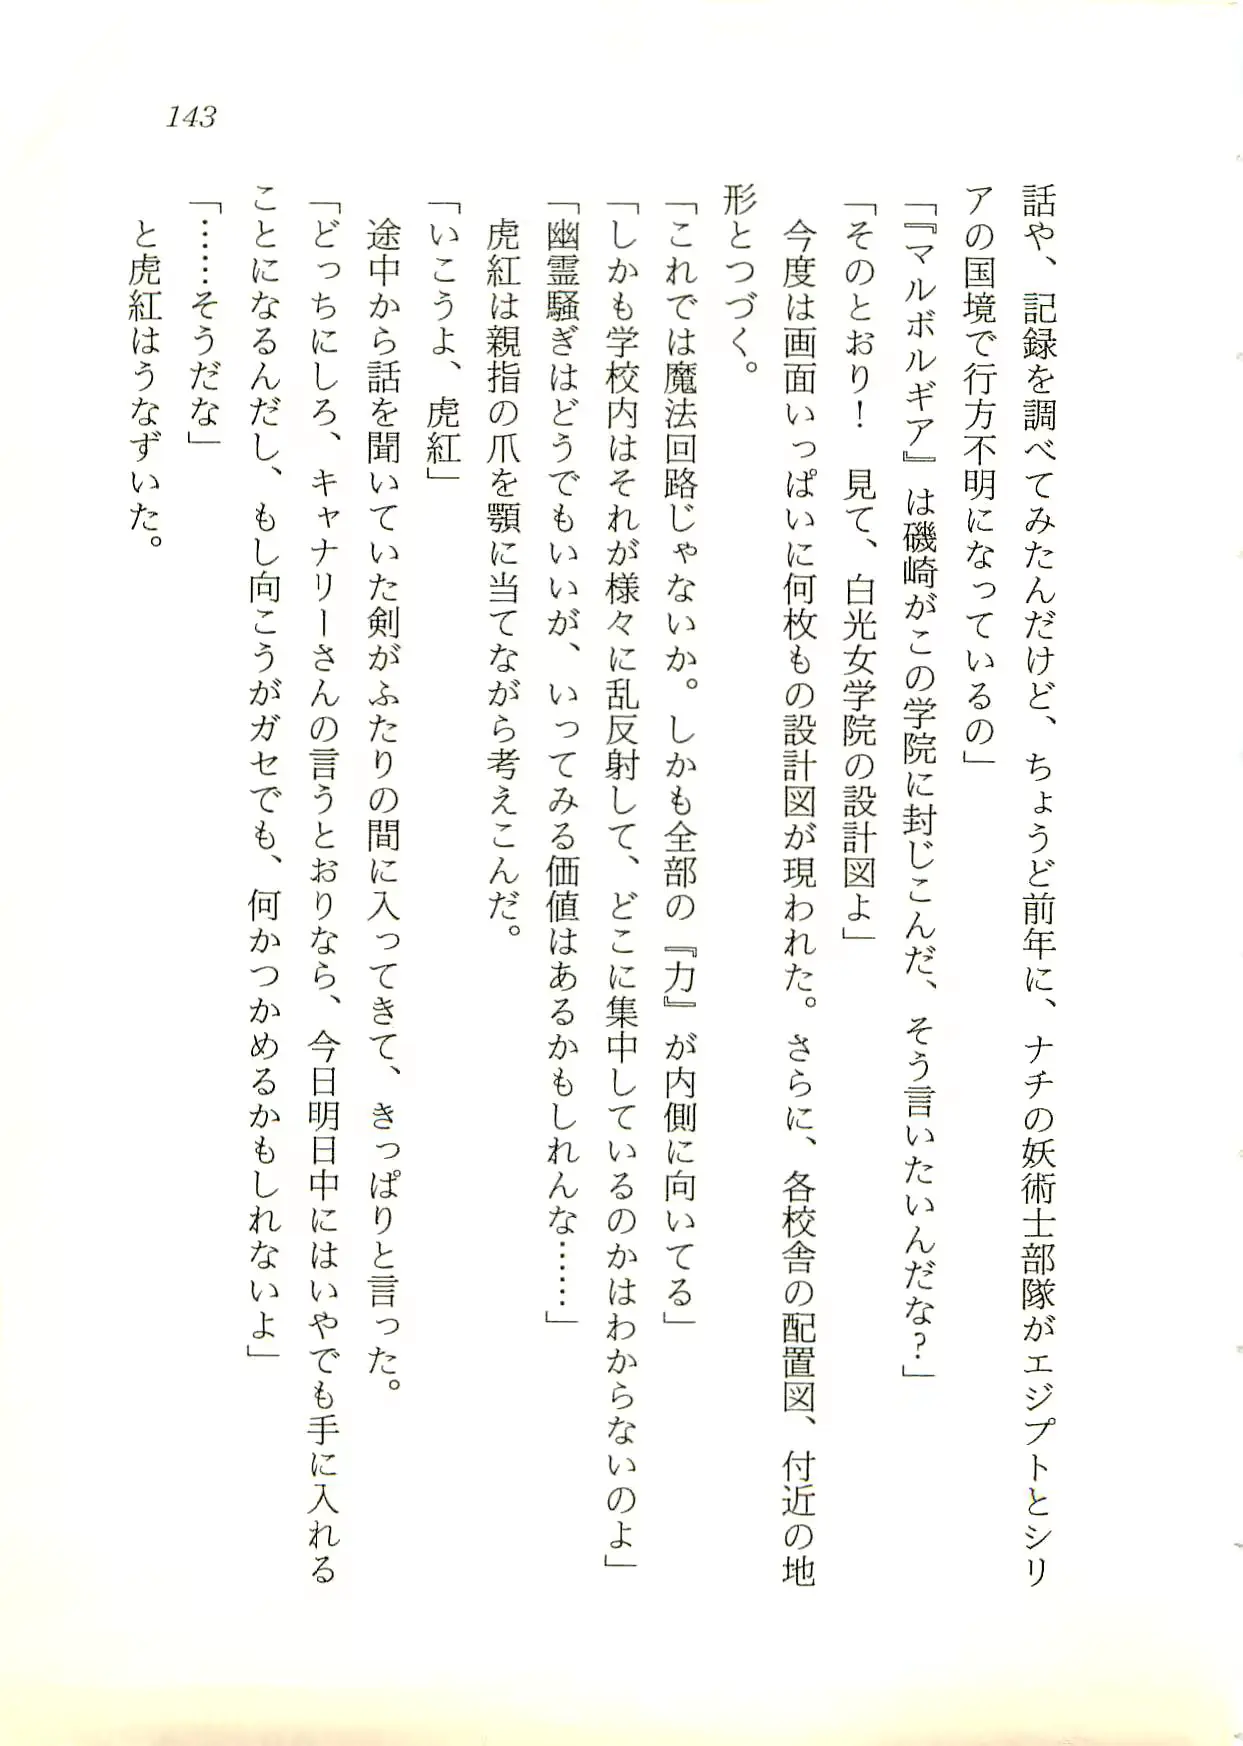 143
話や、記録を調べてみたんだけど、ちょうど前年に、ナチの妖術士部隊がエジプトとシリ
アの国境で行方不明になっているの」
「『マルボルギア』は磯崎がこの学院に封じこんだ、そう言いたいんだな?」
「そのとおり!　見て、白光女学院の設計図よ」
　今度は画面いっぱいに何枚もの設計図が現われた。さらに、各校舎の配置図、付近の地
形とつづく。
「これでは魔法回路じゃないか。しかも全部の『力』が内側に向いてる」
「しかも学校内はそれが様々に乱反射して、どこに集中しているのかはわからないのよ」
「幽霊騒ぎはどうでもいいが、いってみる価値はあるかもしれんな……」
　虎紅は親指の爪を顎に当てながら考えこんだ。
「いこうよ、虎紅」
　途中から話を聞いていた剣がふたりの間に入ってきて、きっぱりと言った。
「どっちにしろ、キャナリーさんの言うとおりなら、今日明日中にはいやでも手に入れる
ことになるんだし、もし向こうがガセでも、何かつかめるかもしれないよ」
「……そうだな」
　と虎紅はうなずいた。